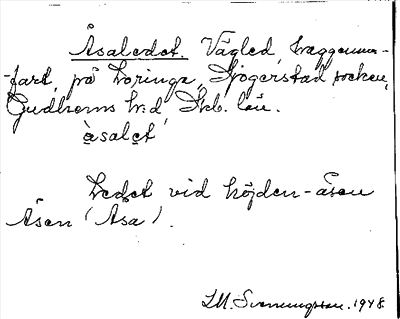 Åsaledet. Vägled,
-fart, på Loringa, Sjögerstad socken,
Gudhems h:d, Skb. län.
àsalet
Ledet vid höjden-åsen
Åsen (Åsa).
I.M. Svenningsson. 1948.